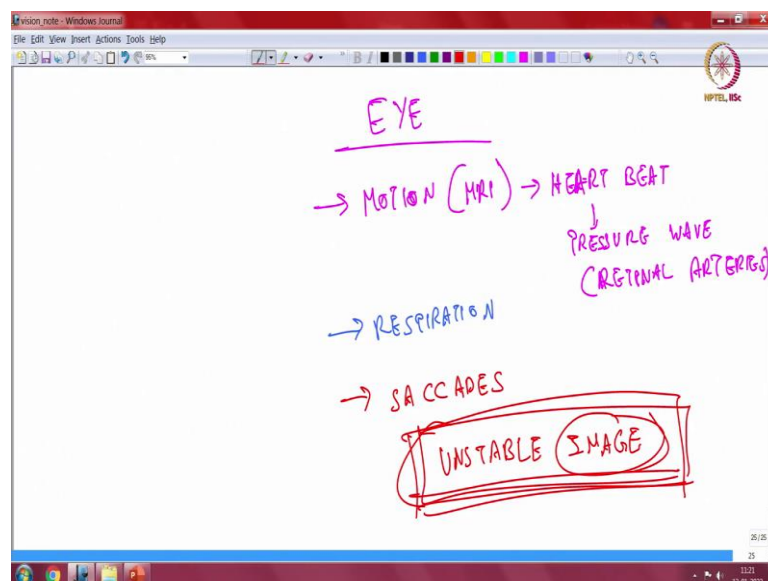 vision_note - Windows Journal
File Edit View Insert Actions Tools Help
95%
B I
NPTEL, IISc
EYE
→ MOTION (MRI) → HEART BEAT
↓
PRESSURE WAVE
(RETINAL ARTERIES)
→ RESPIRATION
→ SACCADES
UNSTABLE IMAGE
25/25
25
11:21